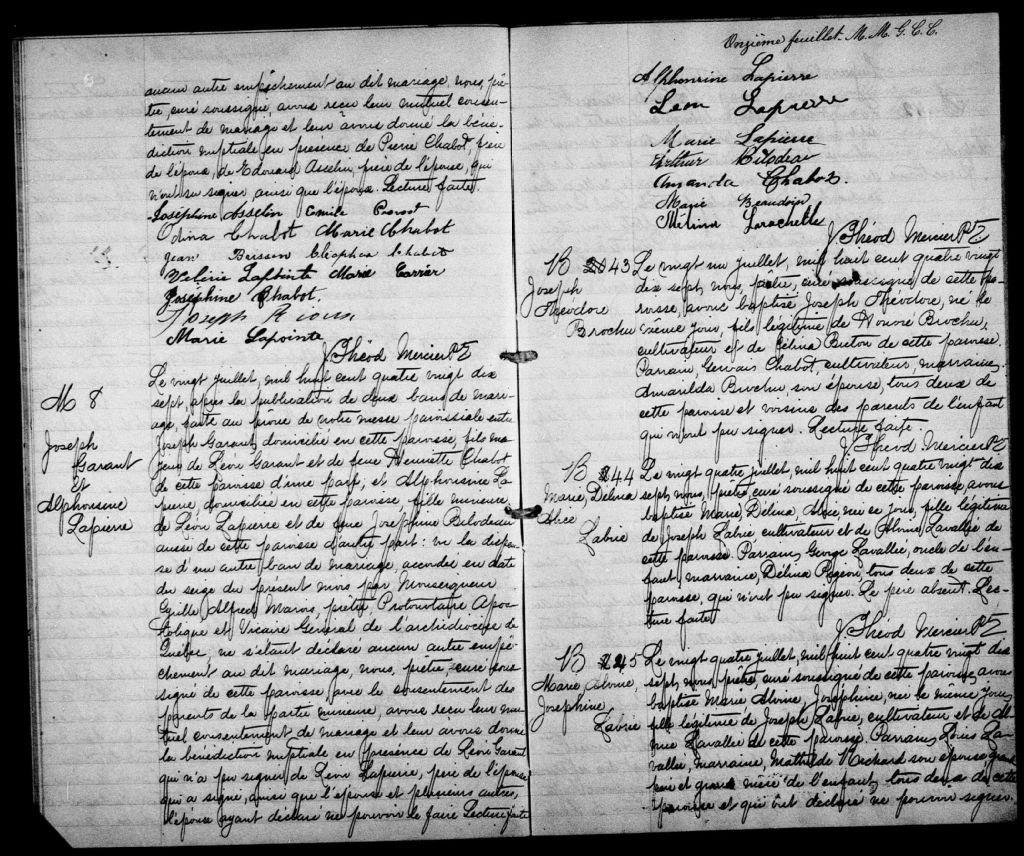 aucun autre empêchement au dit mariage, nous, prê-
tre, curé soussigné, avons reçu leur mutuel consen-
tement de mariage et leur avons donné la béné-
diction nuptiale en présence de Pierre Chabot, père
de l'époux, de Edouard Asselin, père de l'épouse, qui
n'ont su signer, ainsi que l'époux. Lecture faite.
Joséphine Asselin Emile Provost
Odina Chabot Marie Chabot
Jean Cléophas Chabot
Valérie Lapointe Marie Carrier
Joséphine Chabot.
Joseph
Marie Lapointe
J Théod Mercier Ptre
M 8
Joseph
Garant
et
Alphonsine
Lapierre
Le vingt juillet, mil huit cent quatre vingt dix
sept, après la publication de deux bans de mari-
age, faite au prône de notre messe paroissiale entre
Joseph Garant, domicilié en cette paroisse, fils ma-
jeur de Léon Garant et de feue Henriette Chabot
de cette paroisse d'une part, et Alphonsine La-
pierre, domiciliée en cette paroisse, fille mineure
de Léon Lapierre et de feue Josephine Bilodeau
aussi de cette paroisse d'autre part: vu la dispen-
se d'un autre ban de mariage, accordée en date
du seize du présent mois par Monseigneur
Cyrille Alfred Marois, prêtre, Protonotaire Apos-
tolique et Vicaire Général de l'archidiocèse de
Québec ne s'étant déclaré aucun autre empê-
chement au dit mariage, nous, prêtre, curé sous-
signé de cette paroisse avec le consentement des
parents de la partie mineure, avons reçu leur mu-
tuel consentement de mariage et leur avons donné
la bénédiction nuptiale en présence de Léon Garant
qui n'a pu signer de Léon Lapierre, père de l'épouse
qui a signé, ainsi que l'épouse et plusieurs autres,
l'époux ayant déclaré ne pouvoir le faire Lecture faite
Onzième feuillet. M. M. G. C. C.
Alphonsine Lapierre
Léon Lapierre
Marie Lapierre
Arthur Bilodeau
Amanda Chabot.
Marie Beaudoin
Mélina Larochelle
J Théod Mercier Ptre
B 43
Joseph
Théodore
Brochu
Le vingt un juillet, mil huit cent quatre vingt
dix sept, nous, prêtre, curé soussigné de cette pa-
roisse, avons baptisé Joseph Théodore, né le
même jour, fils légitime de Honoré Brochu,
cultivateur et de Célina Breton de cette paroisse.
Parrain, Gervais Chabot, cultivateur, marraine,
Amarilda Brochu, son épouse, tous deux de
cette paroisse et voisins des parents de l'enfant
qui n'ont pu signer. Lecture faite.
J Théod Mercier Ptre
B 44
Marie, Délina
Alice
Labrie
Le vingt quatre juillet, mil huit cent quatre vingt dix
sept, nous, prêtre, curé soussigné de cette paroisse, avons
baptisé Marie, Délina, Alice née ce jour, fille légitime
de Joseph Labrie cultivateur et de Alvina Lavallée de
cette paroisse. Parrain, George Lavallée, oncle de l'en-
fant marraine, Délina Pigeon, tous deux de cette
paroisse, qui n'ont pu signer. Le père absent. Lec-
ture faite
J Théod Mercier Ptre
B 45
Marie, Alvine,
Josephine
Labrie
Le vingt quatre juillet, mil huit cent quatre vingt dix
sept, nous, prêtre curé soussigné de cette paroisse, avons
baptisé Marie Alvine, Josephine, née le même jour,
fille légitime de Joseph Labrie, cultivateur et de Al-
vine Lavallée de cette paroisse. Parrain, Louis La-
vallée, marraine, Mathilde son épouse grand
père et grand mère de l'enfant, tous deux de cette
paroisse et qui ont déclaré ne pouvoir signer.